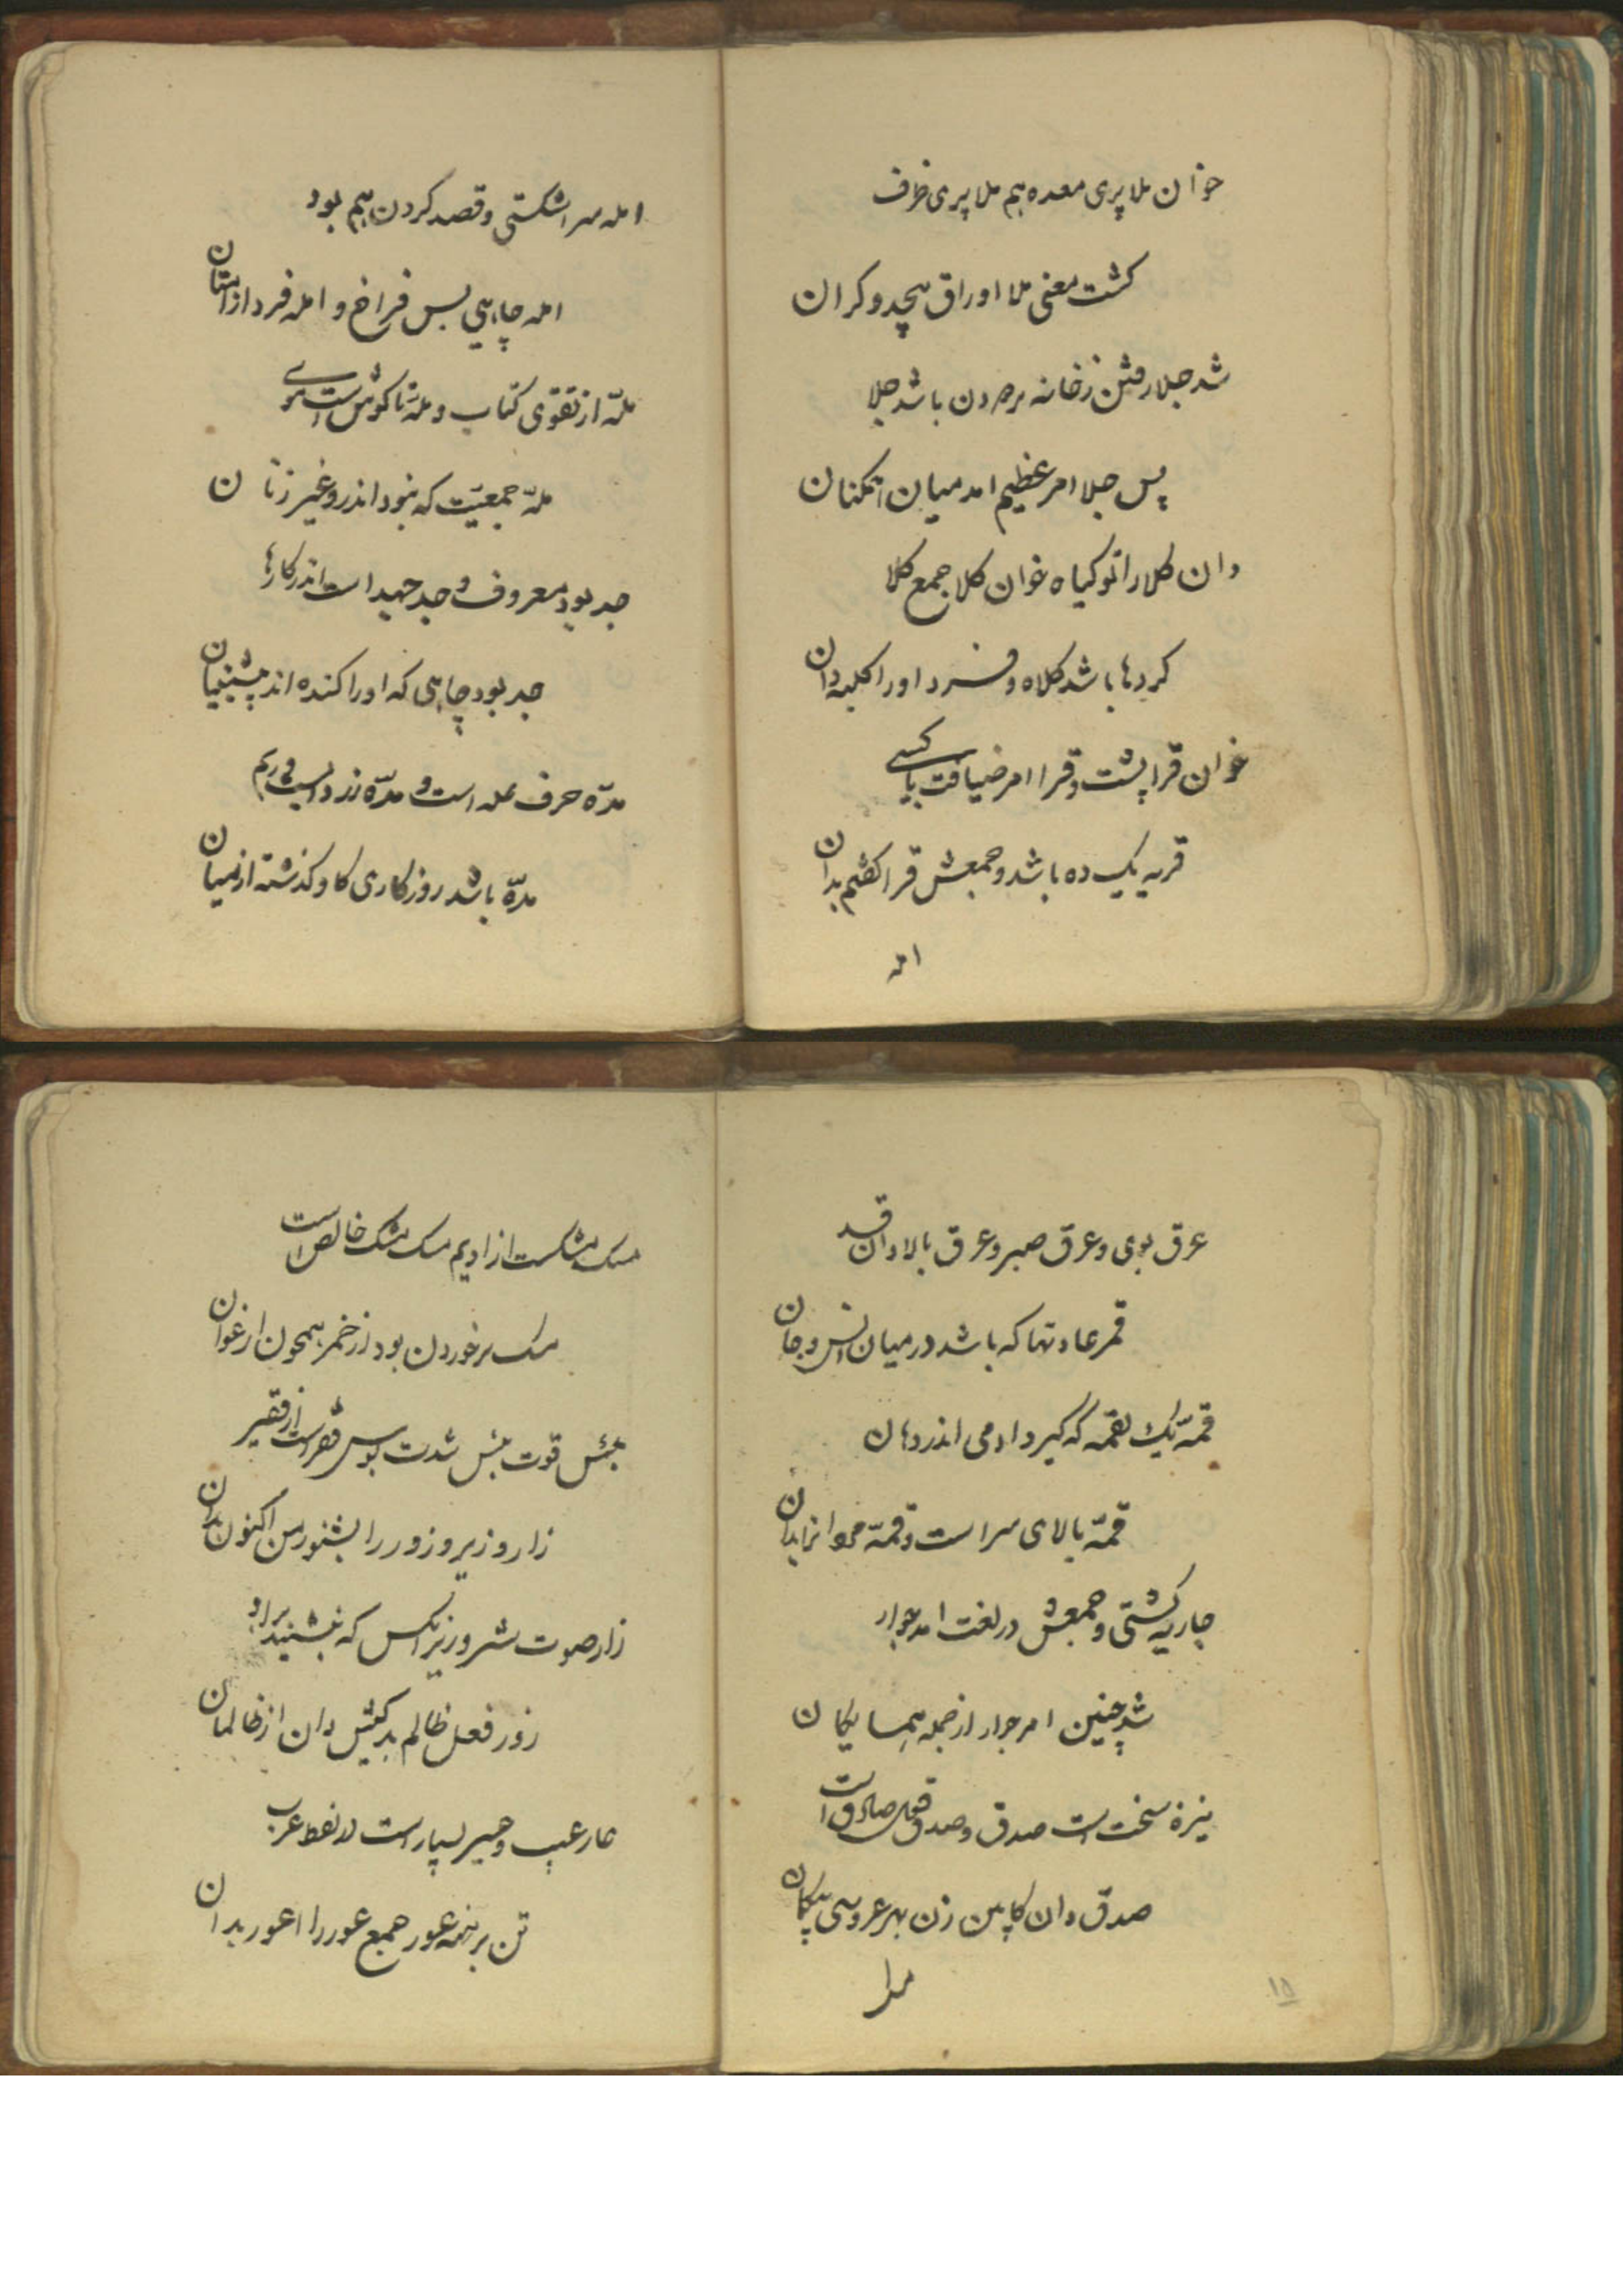 خوان ملا پری معده هم ملا پری ظرف
کشت معنی ملا اوراق بیحد و کران
شد جلا رفتن ز خانه مرد دون باشد جلا
پس جلا امر عظیم امد میان
دان کلا را تو کیاه خوان کلا جمع کلا
کردها باشد کلاه و فرد او را کلیه دان
خوان قرا پشت و قرا امر ضیافت با کسی
قریه یک ده باشد و جمعش قرا کفتم بدان
امه
امه سر اشکستی و قصد کردن هم بود
امه چاهی بس فراخ و امه فرد از امتان
ملّه از تقوی کتاب و ملّه تا کوش است موی
ملّه جمعیّت که نبود اندر و غیر زنان
جد بود معروف و جد جهید است اندر کارها
جد بود چاهی که او را کنده اند پیشینیان
مدّه حرف عله است و مدّه زرد است و ریم
مدّه باشد روزکاری کاو کذشته از میان
عرق بوی و عرق صبر و عرق بالا دان قد
قمر عادتها که باشد در میان انس و جان
قمّه یک لقمه که کیرد ادمی اندر دهان
قمّه بالای سر است و قمّه بدان
جاریه کشتی و جمعش در لغت امد جوار
شد چنین امر جوار از جمله همسایکان
نیزه سخت است صدق و صدق قول صادق است
صدق دان کابین زن بهر عروسی بیکان
۱۵
مسک مشکست از ادیم مسک مشک خالص است
مسک بر خوردن بود از خمر همچون ارغوان
بئس قوت بئس شدت بوس فقر است از فقیر
زار و زیر و زور را بشنو ز من اکنون بدان
زار صوت شیر و زیر انکس که بنشیند براو
زور فعل ظالم بد کیش دان از ظالمان
عار عیب و عیر بسیار است در لفظ عرب
تن برهنه عور جمع عور را اعور بدان